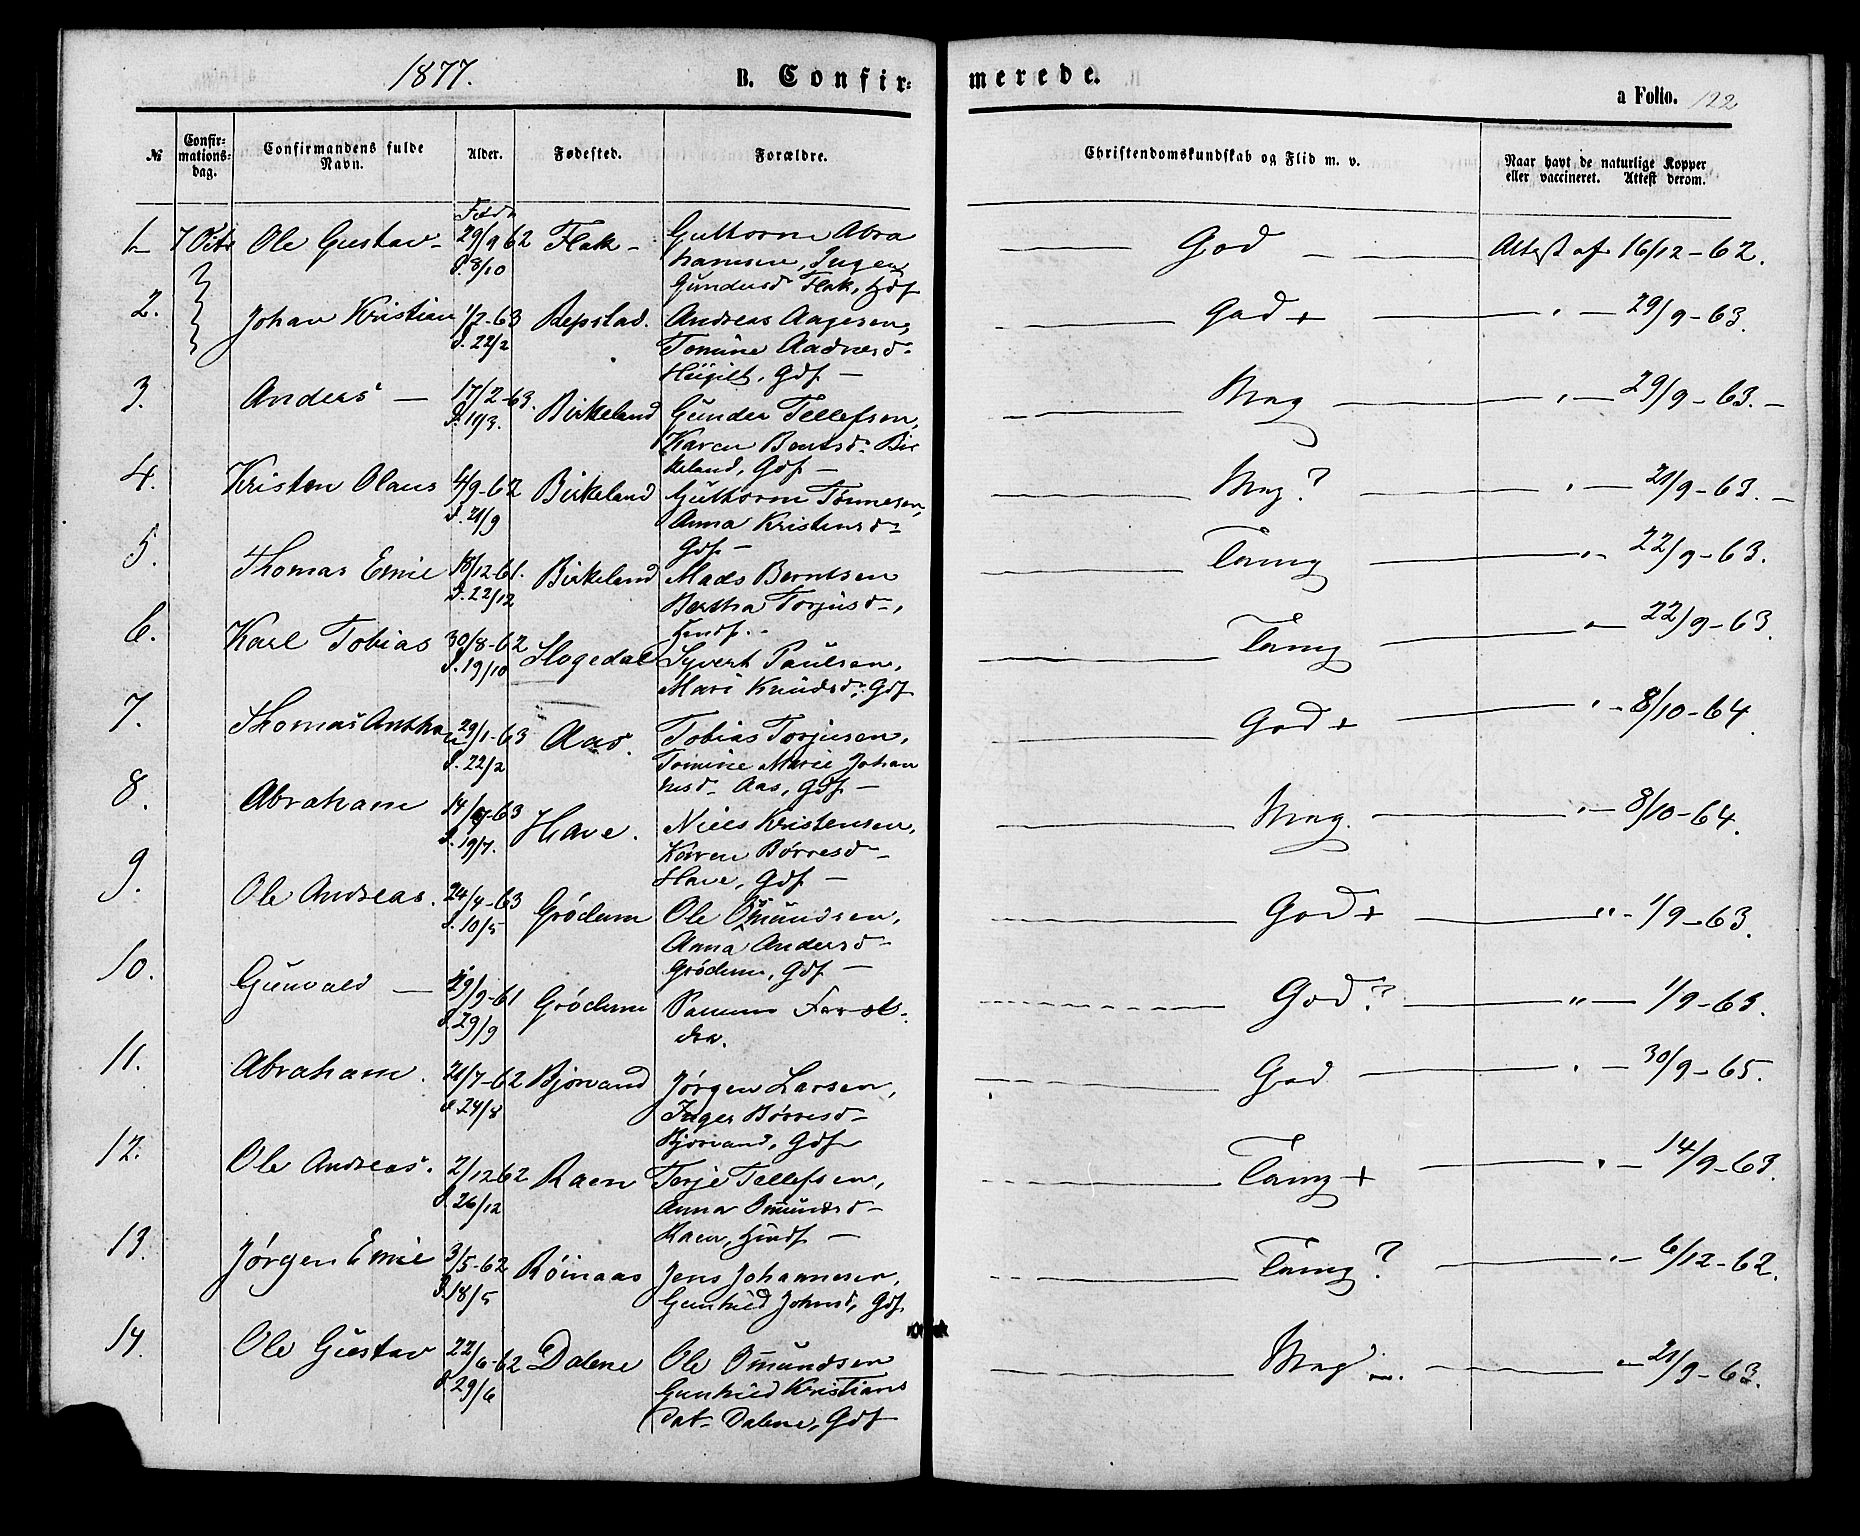 1877.
B. Confir-
merede.
a Folio. 122
№
Confir-
mations-
dag.
Confirmandens fulde
Navn.
Alder.
Fødested.
Forældre.
Christendomskundskab og Flid m. v.
Naar havt de naturlige Kopper
eller vaccineret. Attest derom.
1. 7 Octr Ole Gustav Født 29/9 62 d. 8/10 Flak
Guthorm Abra
hamsen, Inger
Gundersd. Flak, Gdf
God Attest af 16/12-62.
2. Johan Kristian 1/2-63 d. 22/2 Repstad.
Andreas Aagesen,
Tomine Aadnesd.
Gdf
God + " 29/9-63.
3. Anders 17/2-63. d. 1/3. Birkeland
Gunder Tellefsen,
Karen Berntsd. Bir
keland, Gdf
Mag " 29/9-63.
4. Kristen Olaus 4/9-62 d. 21/9 Birkeland
Guthorm Tønnesen,
Anna Kristensd.
Gdf
Mag? " 21/9-63.
5. Thomas Emil 18/12-61. d. 22/12 Birkeland
Mads Berntsen
Bertha Torjusd.,
Hmdf.
Tamg " 22/9-63.
6. Karl Tobias 30/8-62 d. 19/10 Stogedal
Syvert Paulsen,
Mari Knudsd. Gdf
Tamg " 22/9-63.
7. Thomas Anthon 29/1-63 d. 22/2 Aas.
Tobias Torjusen,
Tomine Marie Johan
nesd. Aas, Gdf
God + " 8/10-64.
8. Abraham 14/7-63 d. 19/7. Have.
Niels Kristensen,
Karen Børresd.
Have, Gdf
Mag. " 8/10-64.
9. Ole Andreas. 24/4-63 d. 10/5 Grødum
Ole Omundsen,
Anna Andersd.
Grødum, Gdf
God + " 1/9-63.
10. Gunvald 29/9-61 d. 29/9 Grødum
Samme Foræl-
dre.
God? " 1/9-63.
11. Abraham. 21/7-62 d. 24/8 Bjorvand
Jørgen Larsen,
Inger Børresd.
Bjorvand, Gdf
God " 30/9-65.
12. Ole Andreas. 2/12 62 d. 26/12 Raen
Terje Tellefsen,
Anna Omundsd.
Raen, Hmdf
Tamg + " 14/9-63.
13. Jørgen Emil 3/5-62 d. 18/5 Røinaas
Jens Johannesen,
Gunhild Johnsd, Gdf.
Tamg? " 6/12-62.
14. Ole Gustav 22/6-62 d. 29/6 Dalene
Ole Omundsen
Gunhild Kristians
dat. Dalene, Gdf
Mag " 21/9-63.